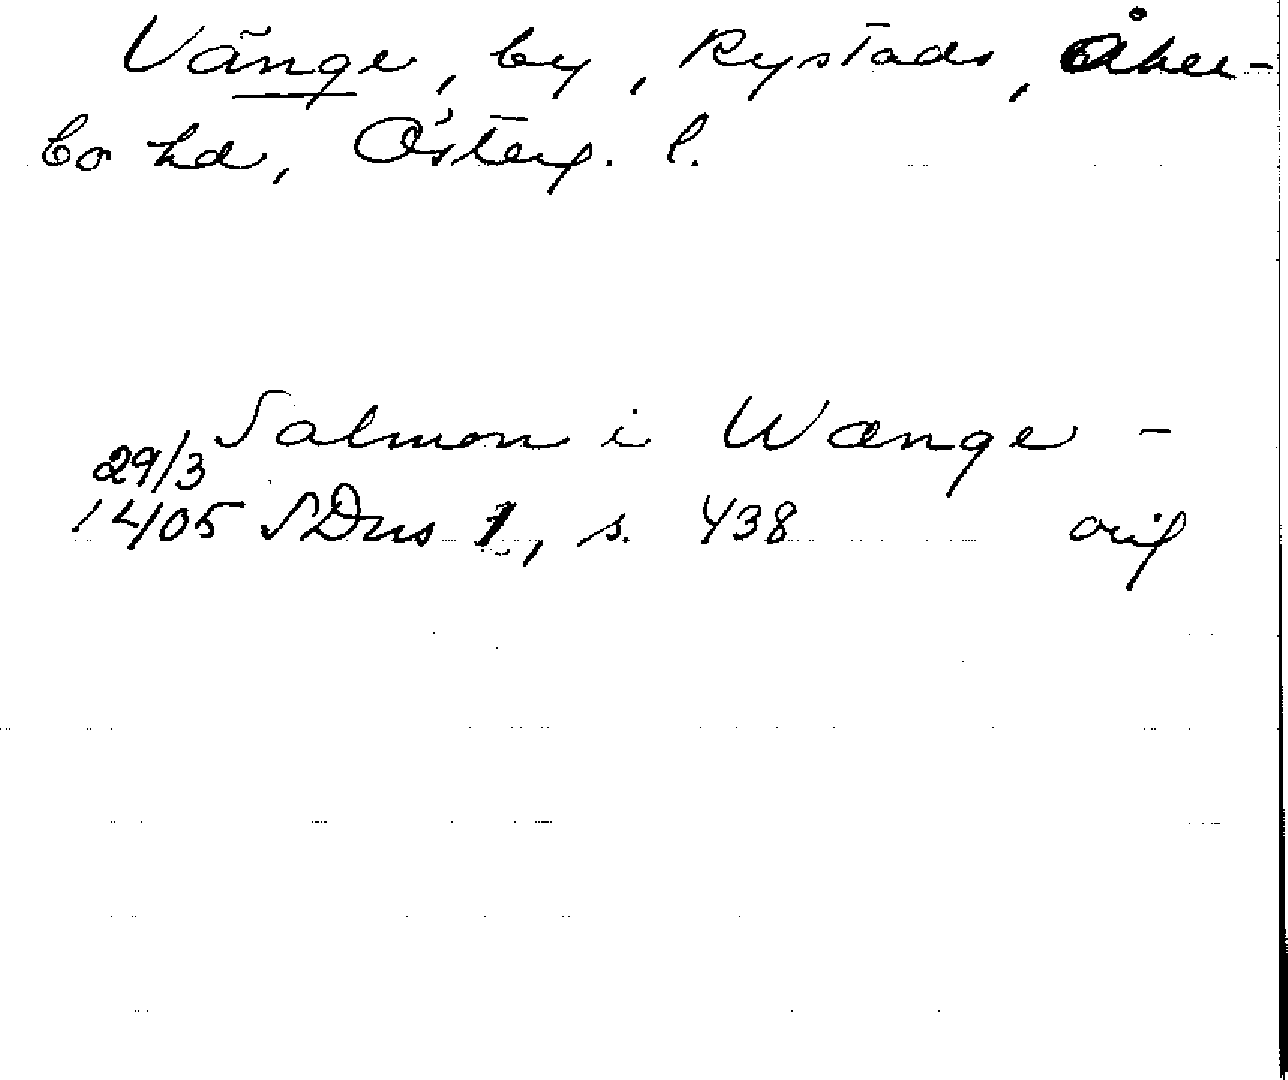 Vänge, by, Rystads, Åker-
bo hd, Österg. l.
Salmon i Wænge -
29/3
1405 SDns 1, s. 438 orig